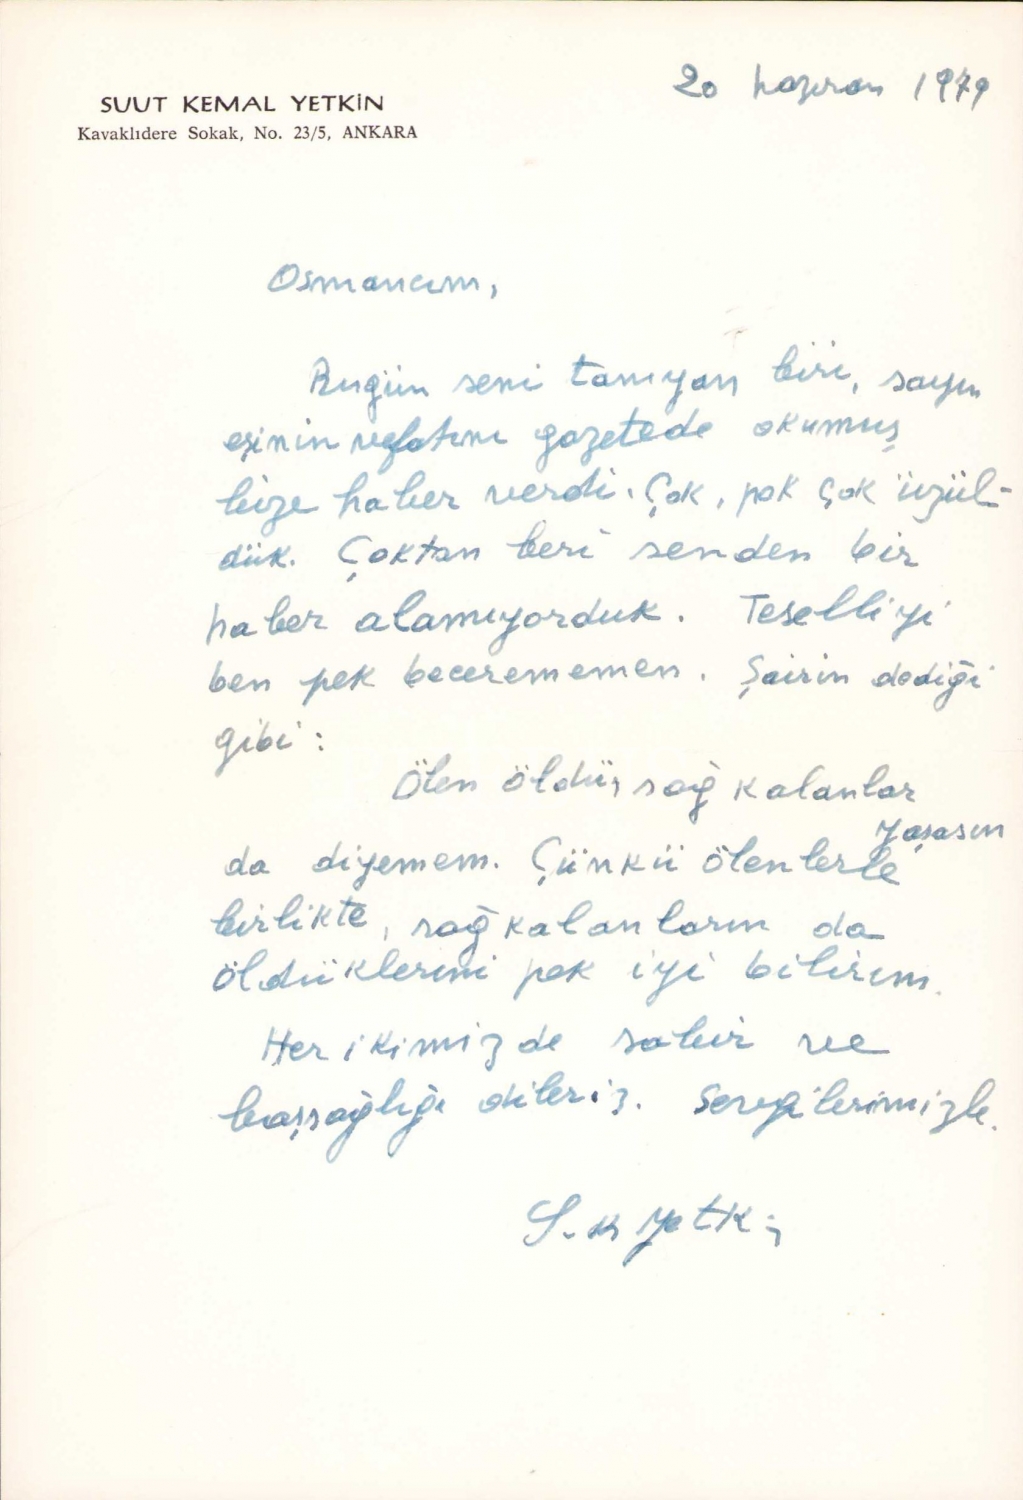 SUUT KEMAL YETKİN
Kavaklıdere Sokak, No. 23/5, ANKARA
20 haziran 1979
Osmancım,
Bugün seni tanıyan biri, sayın
eşinin vefatını gazetede okumuş
bize haber verdi. Çok, pek çok üzül-
dük. Çoktan beri senden bir
haber alamıyorduk. Teselliyi
ben pek beceremem. Şairin dediği
gibi:
Ölen öldü, sağ kalanlar
yaşasın
da diyemem. Çünkü ölenlerle
birlikte, sağ kalanların da
öldüklerini pek iyi bilirim.
Her ikimizde sabır ve
başsağlığı dileriz. Sevgilerimizle.
S. K Yetkin